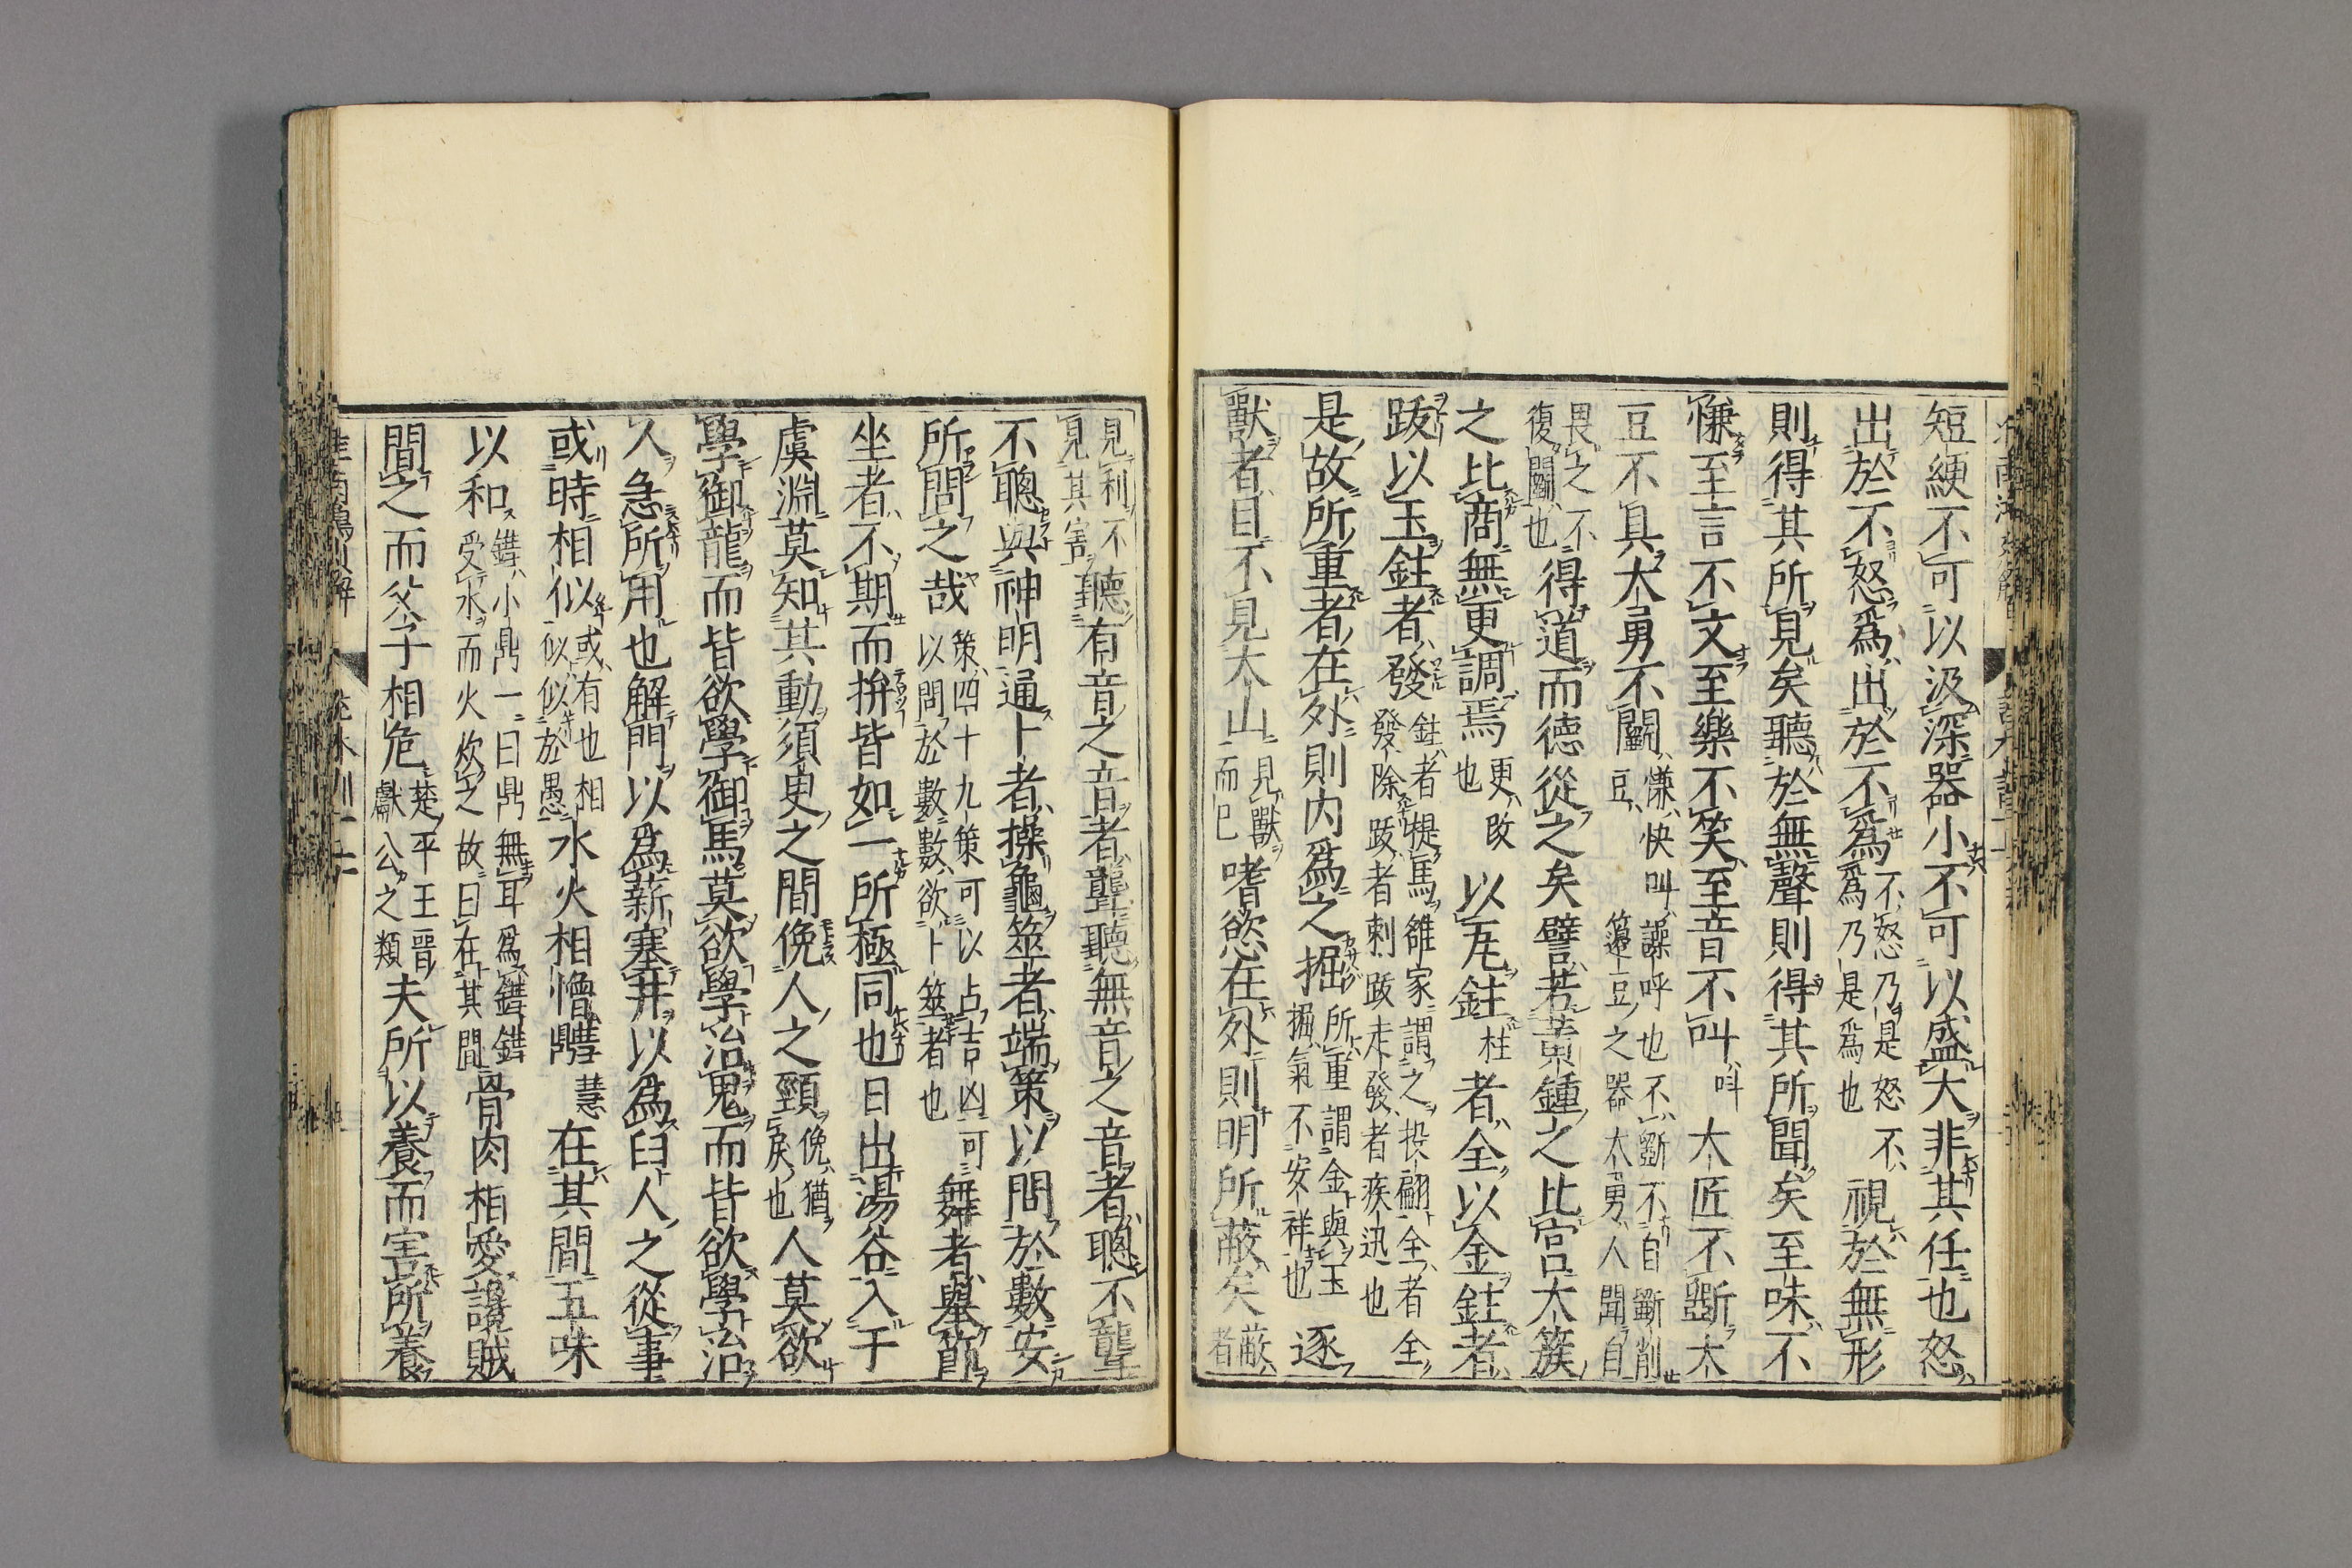 短綆不可以汲深器小不可以盛大非其任也怒
出於不怒爲出於不爲不怒乃是怒不
爲乃是爲也視於無形
則得其所見矣聽於無聲則得其所聞矣至味不
慊至言不文至樂不笑至音不叫叫大匠不斲大
豆不具大勇不鬭慊快叫譟呼也不斲不自斲削
豆籩豆之器大勇人聞自
畏之不
復鬭也得道而徳從之矣譬若黄鍾之比宮太簇
之比商無更調焉更改
也以瓦鉒柱者全以金鉒者
跋以玉鉒者發鉒者提馬雒家謂之投翩全者全
發除跋者刺跋走發者疾迅也
是故所重者在外則内爲之掘所重謂金與玉
掘氣不安祥也逐
獸者目不見太山見獸
而已嗜慾在外則明所蔽矣蔽
者
見利不
見其害聽有音之音者聾聽無音之音者聰不聾
不聰與神明通卜者操龜筮者端策以問於數安
所問之哉策四十九策可以占吉凶可
以問於數數欲卜筮者也舞者舉節
坐者不期而拚皆如一所極同也日出湯谷入于
虞淵莫知其動須臾之間俛人之頸俛猶
戾也人莫欲
學御龍而皆欲學御馬莫欲學治鬼而皆欲學治
人急所用也解門以爲薪塞井以爲臼人之從事
或時相似或有也相
似似於愚水火相憎鏏慧在其間五味
以和鏏小鼎一曰鼎無耳爲鏏鏏
受水而火炊之故曰在其間骨肉相愛讒賊
間之而父子相危楚平王晋
獻公之類夫所以養而害所養